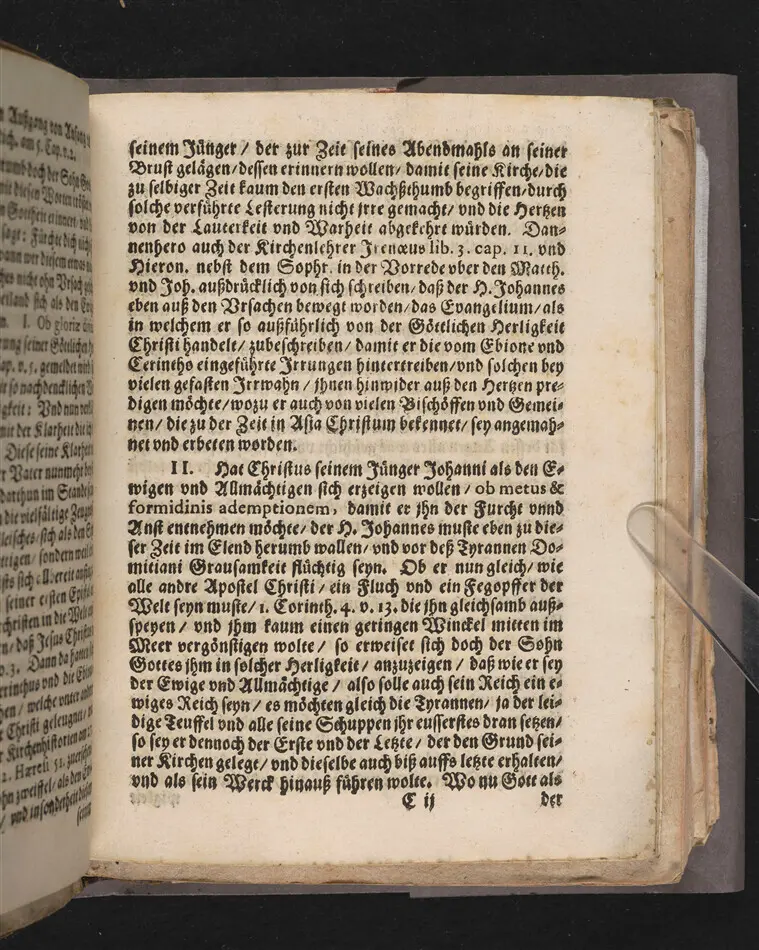 seinem Jünger / der zur Zeit seines Abendmahls an seiner
Brust gelägen/dessen erinnern wollen/ damit seine Kirche/die
zu selbiger Zeit kaum den ersten Wachßthumb begriffen/durch
solche verführte Lesterung nicht jrre gemacht/ vnd die Hertzen
von der Lauterkeit vnd Warheit abgekehrt würden. Dan-
nenhero auch der Kirchenlehrer Irenœus lib. 3. cap. 11. vnd
Hieron. nebst dem Sophr. in der Vorrede vber den Matth.
vnd Joh. außdrücklich von sich schreiben/ daß der H. Johannes
eben auß den Vrsachen bewegt worden/das Evangelium/als
in welchem er so außführlich von der Göttlichen Herligkeit
Christi handelt/ zubeschreiben/ damit er die vom Ebione vnd
Cerintho eingeführte Irrungen hintertreiben/vnd solchen bey
vielen gefasten Irrwahn / jhnen hinwider auß den Hertzen pre-
digen möchte/wozu er auch von vielen Bischöffen vnd Gemei-
nen/ die zu der Zeit in Asia Christum bekennet/ sey angemah-
net vnd erbeten worden.
II. Hat Christus seinem Jünger Johanni als den E-
wigen vnd Allmächtigen sich erzeigen wollen / ob metus &
formidinis ademptionem, damit er jhn der Furcht vnnd
Anst entnehmen möchte/ der H. Johannes muste eben zu die-
ser Zeit im Elend herumb wallen/ vnd vor deß Tyrannen Do-
mitiani Grausamkeit flüchtig seyn. Ob er nun gleich/ wie
alle andre Apostel Christi / ein Fluch vnd ein Fegopffer der
Welt seyn muste/ 1. Corinth. 4. v. 13. die jhn gleichsamb auß-
speyen / vnd jhm kaum einen geringen Winckel mitten im
Meer vergönstigen wolte / so erweiset sich doch der Sohn
Gottes jhm in solcher Herligkeit/ anzuzeigen / daß wie er sey
der Ewige vnd Allmächtige / also solle auch sein Reich ein e-
wiges Reich seyn / es möchten gleich die Tyrannen/ ja der lei-
dige Teuffel vnd alle seine Schuppen jhr eusserstes dran setzen/
so sey er dennoch der Erste vnd der Letzte / der den Grund sei-
ner Kirchen gelegt/ vnd dieselbe auch biß auffs letzte erhalten/
vnd als sein Werck hinauß führen wolte. Wo nu Gott als
C ij der